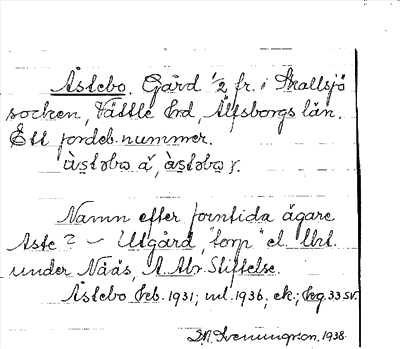 Åstebo. Gård 1/2 fr. i Skallsjö
socken, Vättle hd, Älfsborgs län.
Ett jordeb. nummer.
ùs̥təbə ǎ, às̥təbə y.
Namn efter forntida ägare
Aste? – Utgård, "torp" el. lbt.
under Nääs, A. Abr. Stiftelse.
Åstebo Geb. 1931; vl. 1936, ek.; Geg. 33 sv.
1938.